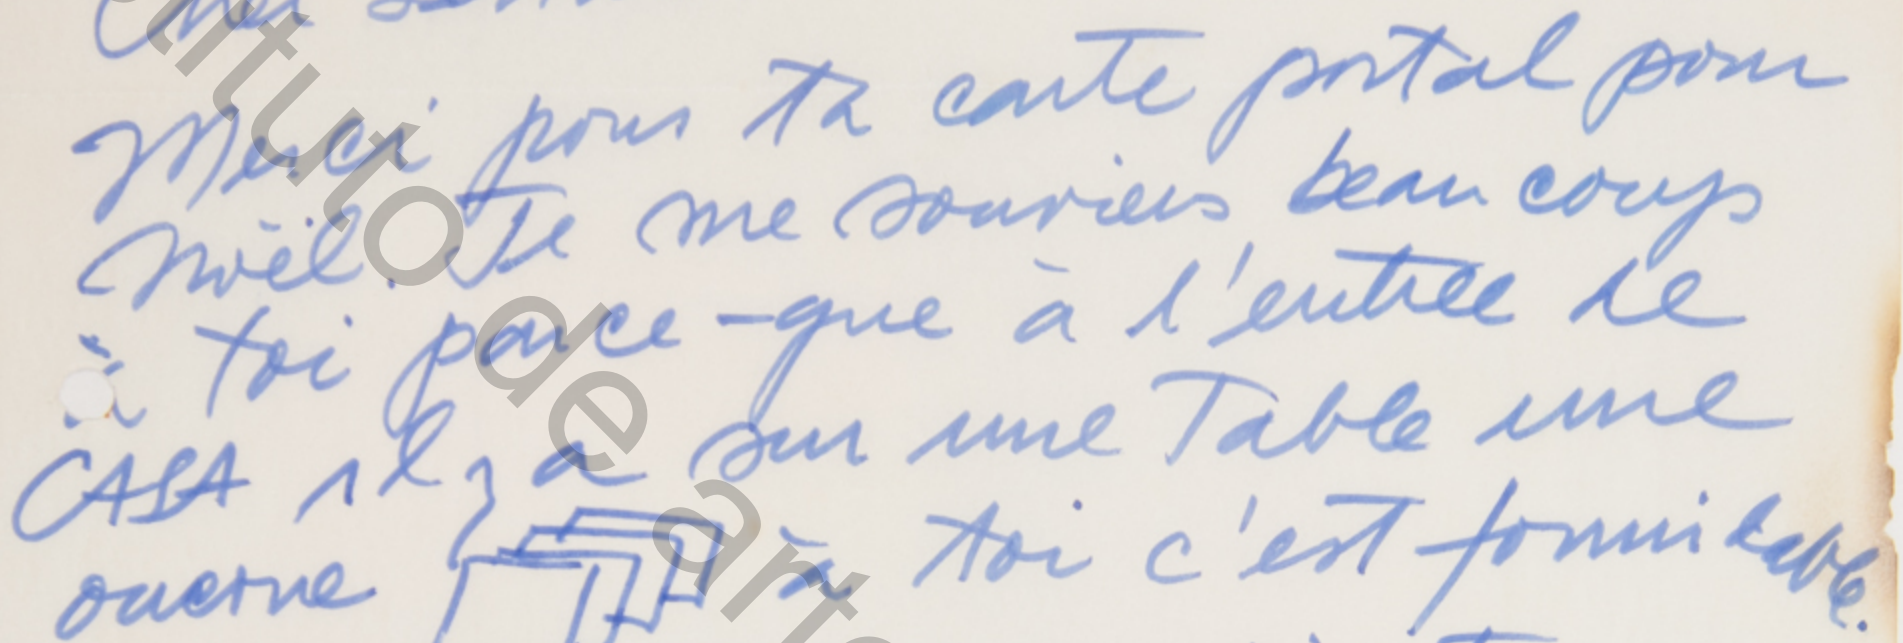 Cher
Merci pour ta carte portal pour
Noël. Je me souviens beaucoup
à toi parce-que à l'entree de
CASA il y a sur une Table une
à toi c'est formidable.
tituto de arte